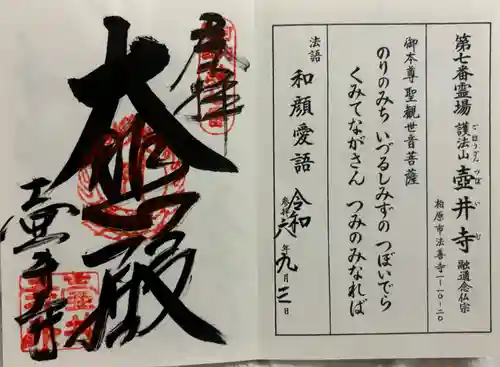 第七番霊場
護法山 壺井寺 融通念仏宗
ごほうざん つぼいじ
柏原市法善寺一ー一〇ー二〇
御本尊 聖観世音菩薩
のりのみち いづるしみずの つぼいでら
くみてながさん つみのみなれば
法語
和顔愛語
参拝 令和六年九月三日
奉拝
大悲殿
壷井寺